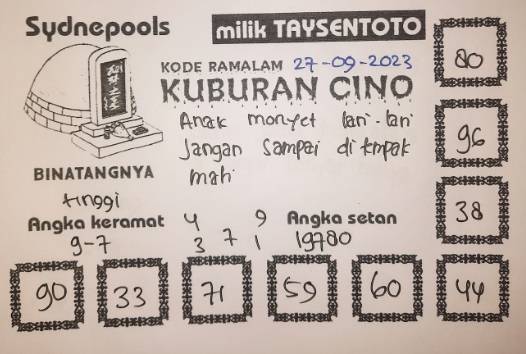 Sydnepools
milik TAYSENTOTO
KODE RAMALAM 27-09-2023
KUBURAN CINO
Anak monyet lari-lari
Jangan Sampai di tempak
mati
BINATANGNYA
tinggi
Angka keramat
9-7
4 9
3 7 1
Angka setan
19780
80
96
38
90 33 71 59 60 44